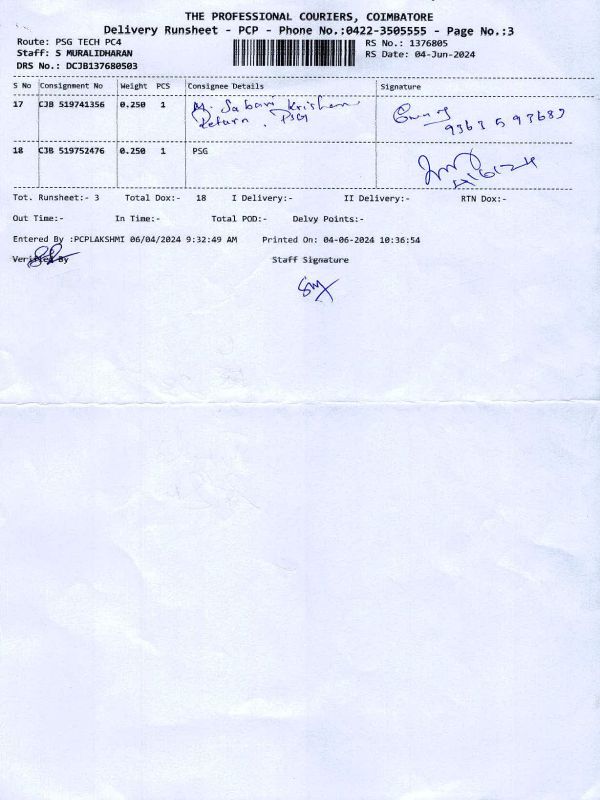 THE PROFESSIONAL COURIERS, COIMBATORE
Delivery Runsheet - PCP - Phone No.:0422-3505555 - Page No.:3
Route: PSG TECH PC4 RS No.: 1376805
Staff: S MURALIDHARAN RS Date: 04-Jun-2024
DRS No.: DCJB137680503
S No Consignment No Weight PCS Consignee Details Signature
17 CJB 519741356 0.250 1 M. Sabari Krishan
Return. PSG 9363593683
18 CJB 519752476 0.250 1 PSG
4/6/24
Tot. Runsheet:- 3 Total Dox:- 18 I Delivery:- II Delivery:- RTN Dox:-
Out Time:- In Time:- Total POD:- Delvy Points:-
Entered By :PCPLAKSHMI 06/04/2024 9:32:49 AM Printed On: 04-06-2024 10:36:54
Verified By Staff Signature